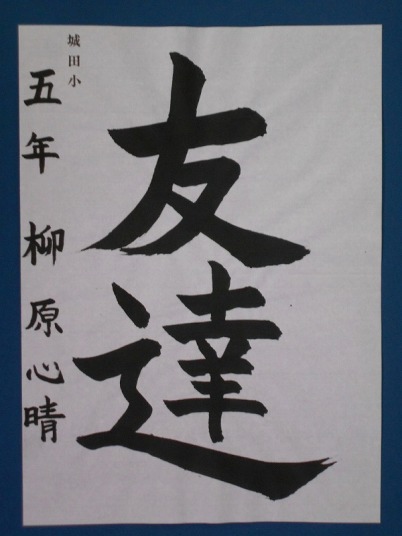 友達
城田小
五年 柳原心晴